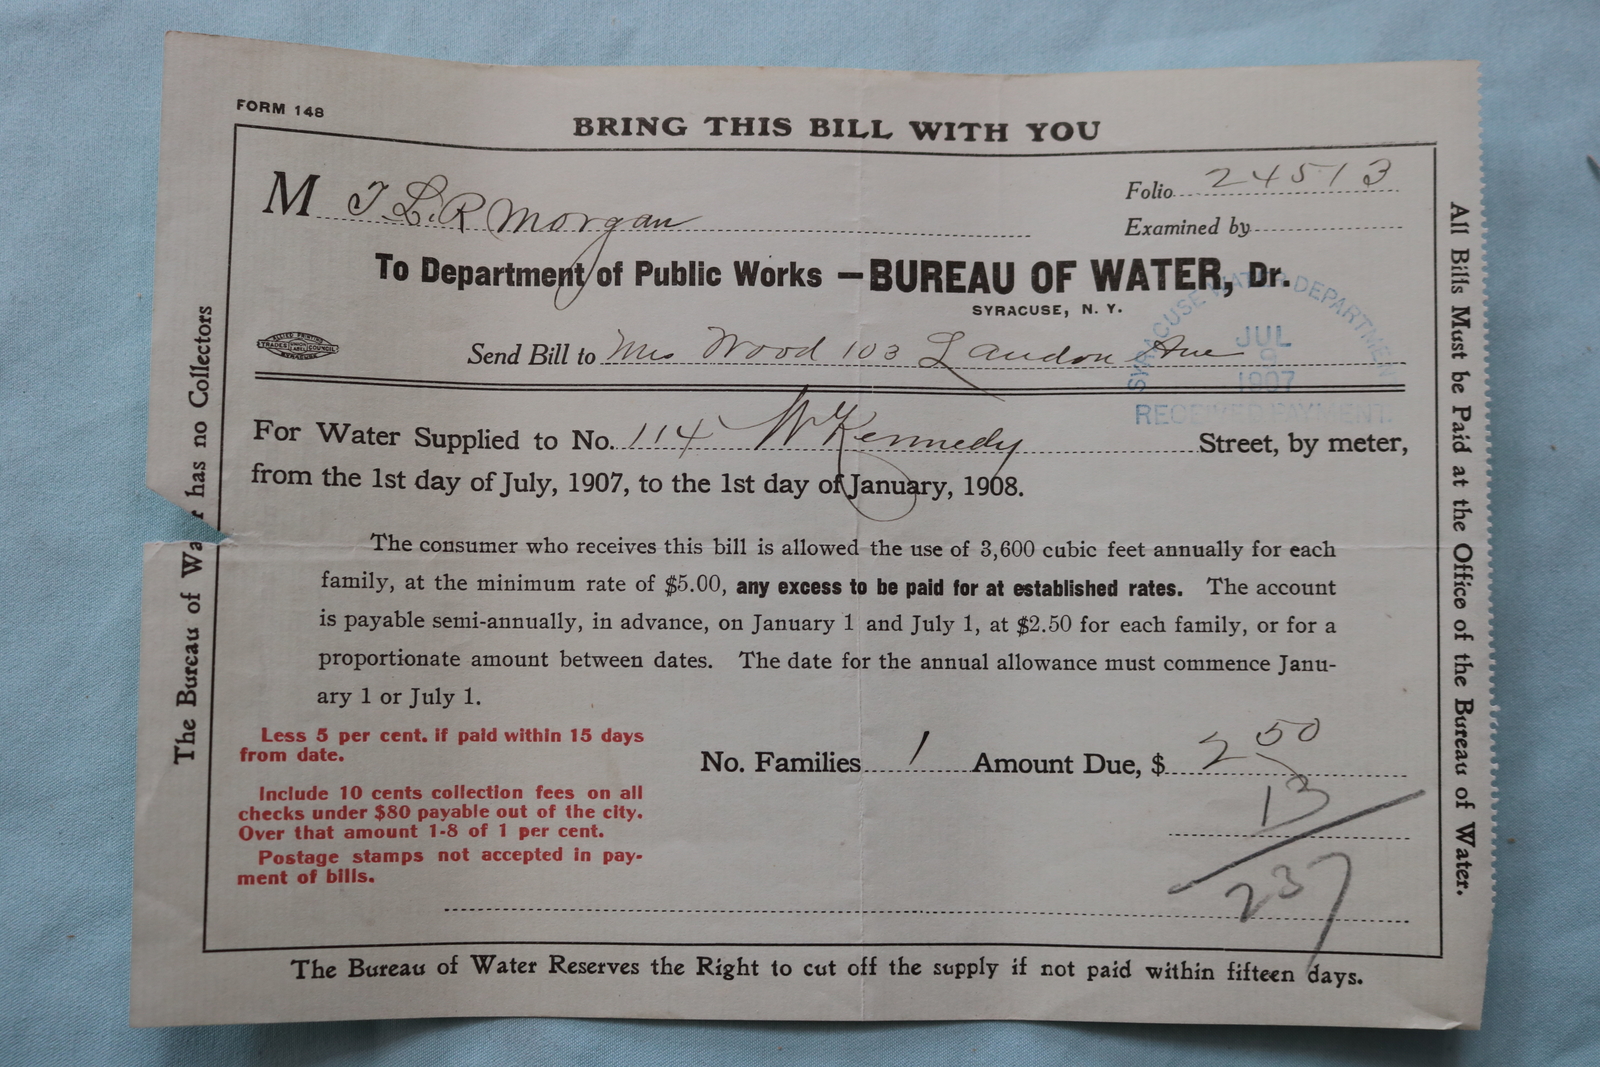 FORM 148
BRING THIS BILL WITH YOU
M T. L. R. Morgan
Folio 24513
Examined by
To Department of Public Works — BUREAU OF WATER, Dr.
SYRACUSE, N. Y.
ALLIED PRINTING
TRADES UNION LABEL COUNCIL
SYRACUSE
Send Bill to Mrs Wood 103 Landon Ave
SYRACUSE WATER DEPARTMENT
JUL
9
1907
RECEIVED PAYMENT.
For Water Supplied to No. 114 W Kennedy Street, by meter,
from the 1st day of July, 1907, to the 1st day of January, 1908.
The consumer who receives this bill is allowed the use of 3,600 cubic feet annually for each
family, at the minimum rate of $5.00, any excess to be paid for at established rates. The account
is payable semi-annually, in advance, on January 1 and July 1, at $2.50 for each family, or for a
proportionate amount between dates. The date for the annual allowance must commence Janu-
ary 1 or July 1.
Less 5 per cent. if paid within 15 days
from date.
Include 10 cents collection fees on all
checks under $80 payable out of the city.
Over that amount 1-8 of 1 per cent.
Postage stamps not accepted in pay-
ment of bills.
No. Families 1 Amount Due, $ 2 50
13
237
The Bureau of Water Reserves the Right to cut off the supply if not paid within fifteen days.
The Bureau of Wa r has no Collectors
All Bills Must be Paid at the Office of the Bureau of Water.